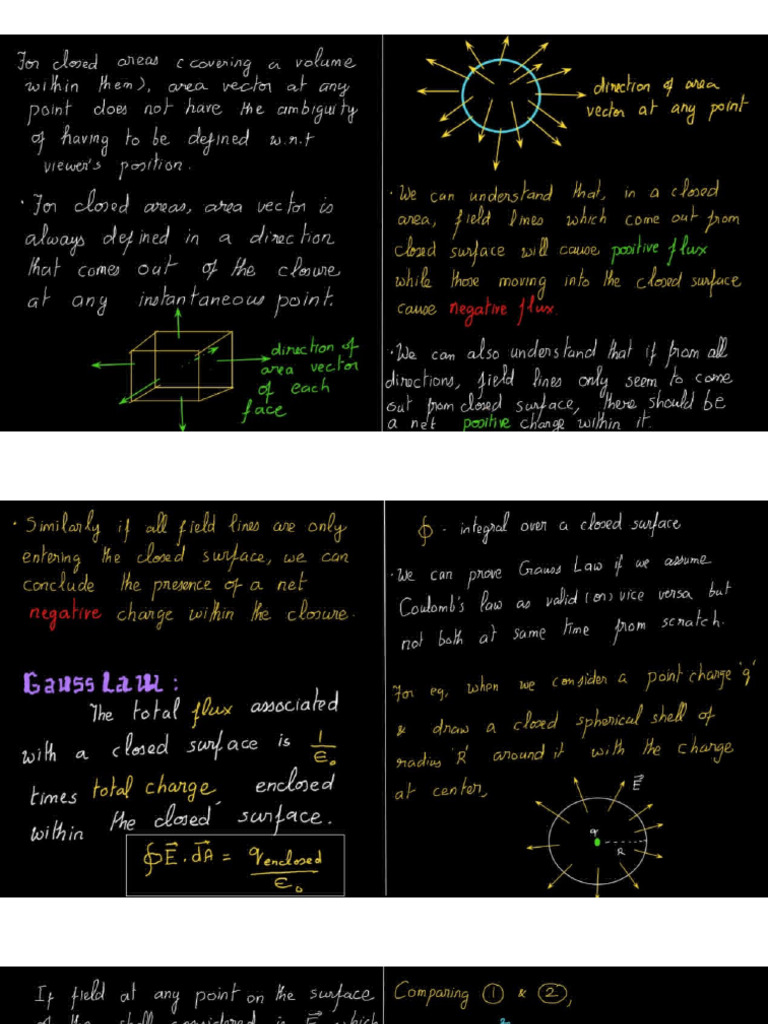 For closed areas (covering a volume
within them), area vector at any
point does not have the ambiguity
of having to be defined w.r.t
viewer's position.
· For closed areas, area vector is
always defined in a direction
that comes out of the closure
at any instantaneous point.
direction of
area vector
of each
face
direction of area
vector at any point
· We can understand that, in a closed
area, field lines which come out from
closed surface will cause positive flux
while those moving into the closed surface
cause negative flux.
· We can also understand that if from all
directions, field lines only seem to come
out from closed surface, there should be
a net positive charge within it.
· Similarly if all field lines are only
entering the closed surface, we can
conclude the presence of a net
negative charge within the closure.
Gauss Law :
The total flux associated
with a closed surface is 1/ε₀
times total charge enclosed
within the closed surface.
∮E⃗.dA⃗ = q enclosed/ε₀
∮ - integral over a closed surface
· We can prove Gauss Law if we assume
Coulomb's law as valid (or) vice versa but
not both at same time from scratch.
For eg, when we consider a point charge 'q'
& draw a closed spherical shell of
radius 'R' around it with the charge
at center,
E⃗
q
R
If field at any point on the surface
of the shell considered is E⃗ which
Comparing ① & ②,